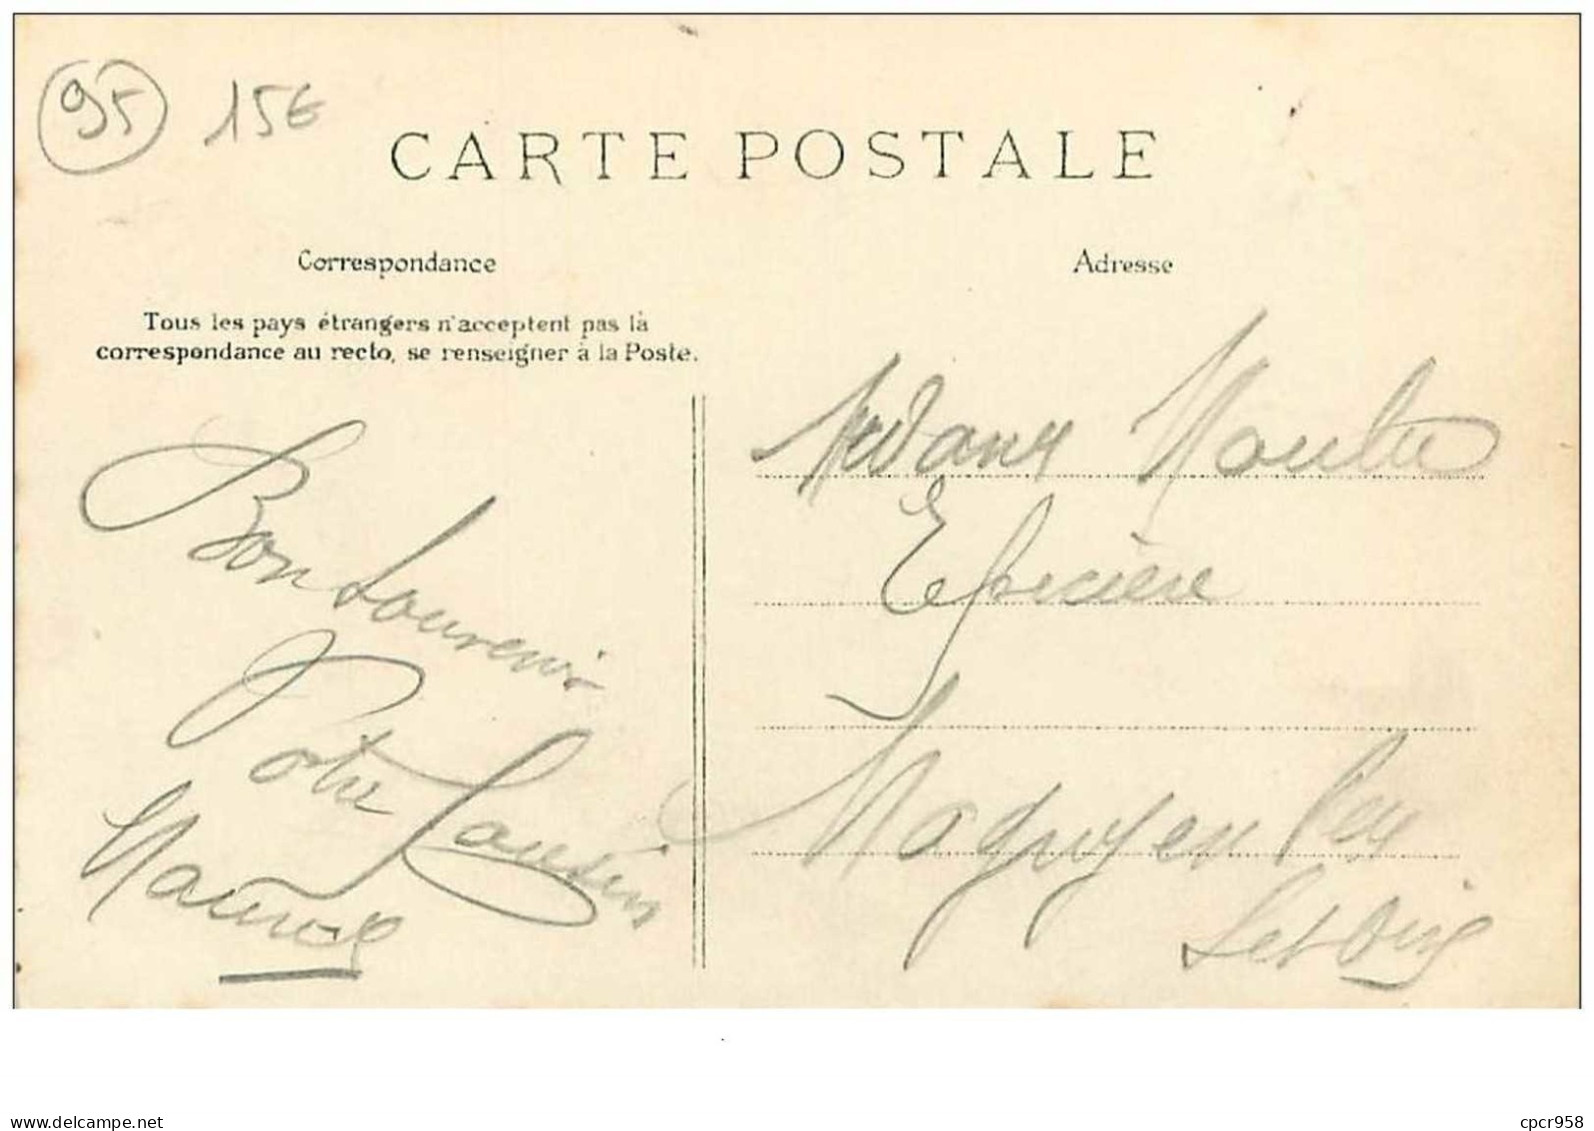 95 15€
CARTE POSTALE
Correspondance
Adresse
Tous les pays étrangers n'acceptent pas la
correspondance au recto, se renseigner à la Poste.
Bon Souvenir
Votre Cousin
Madame
Epicière
Magny en Vex
Set Oise
delcampe.net
cpcr958